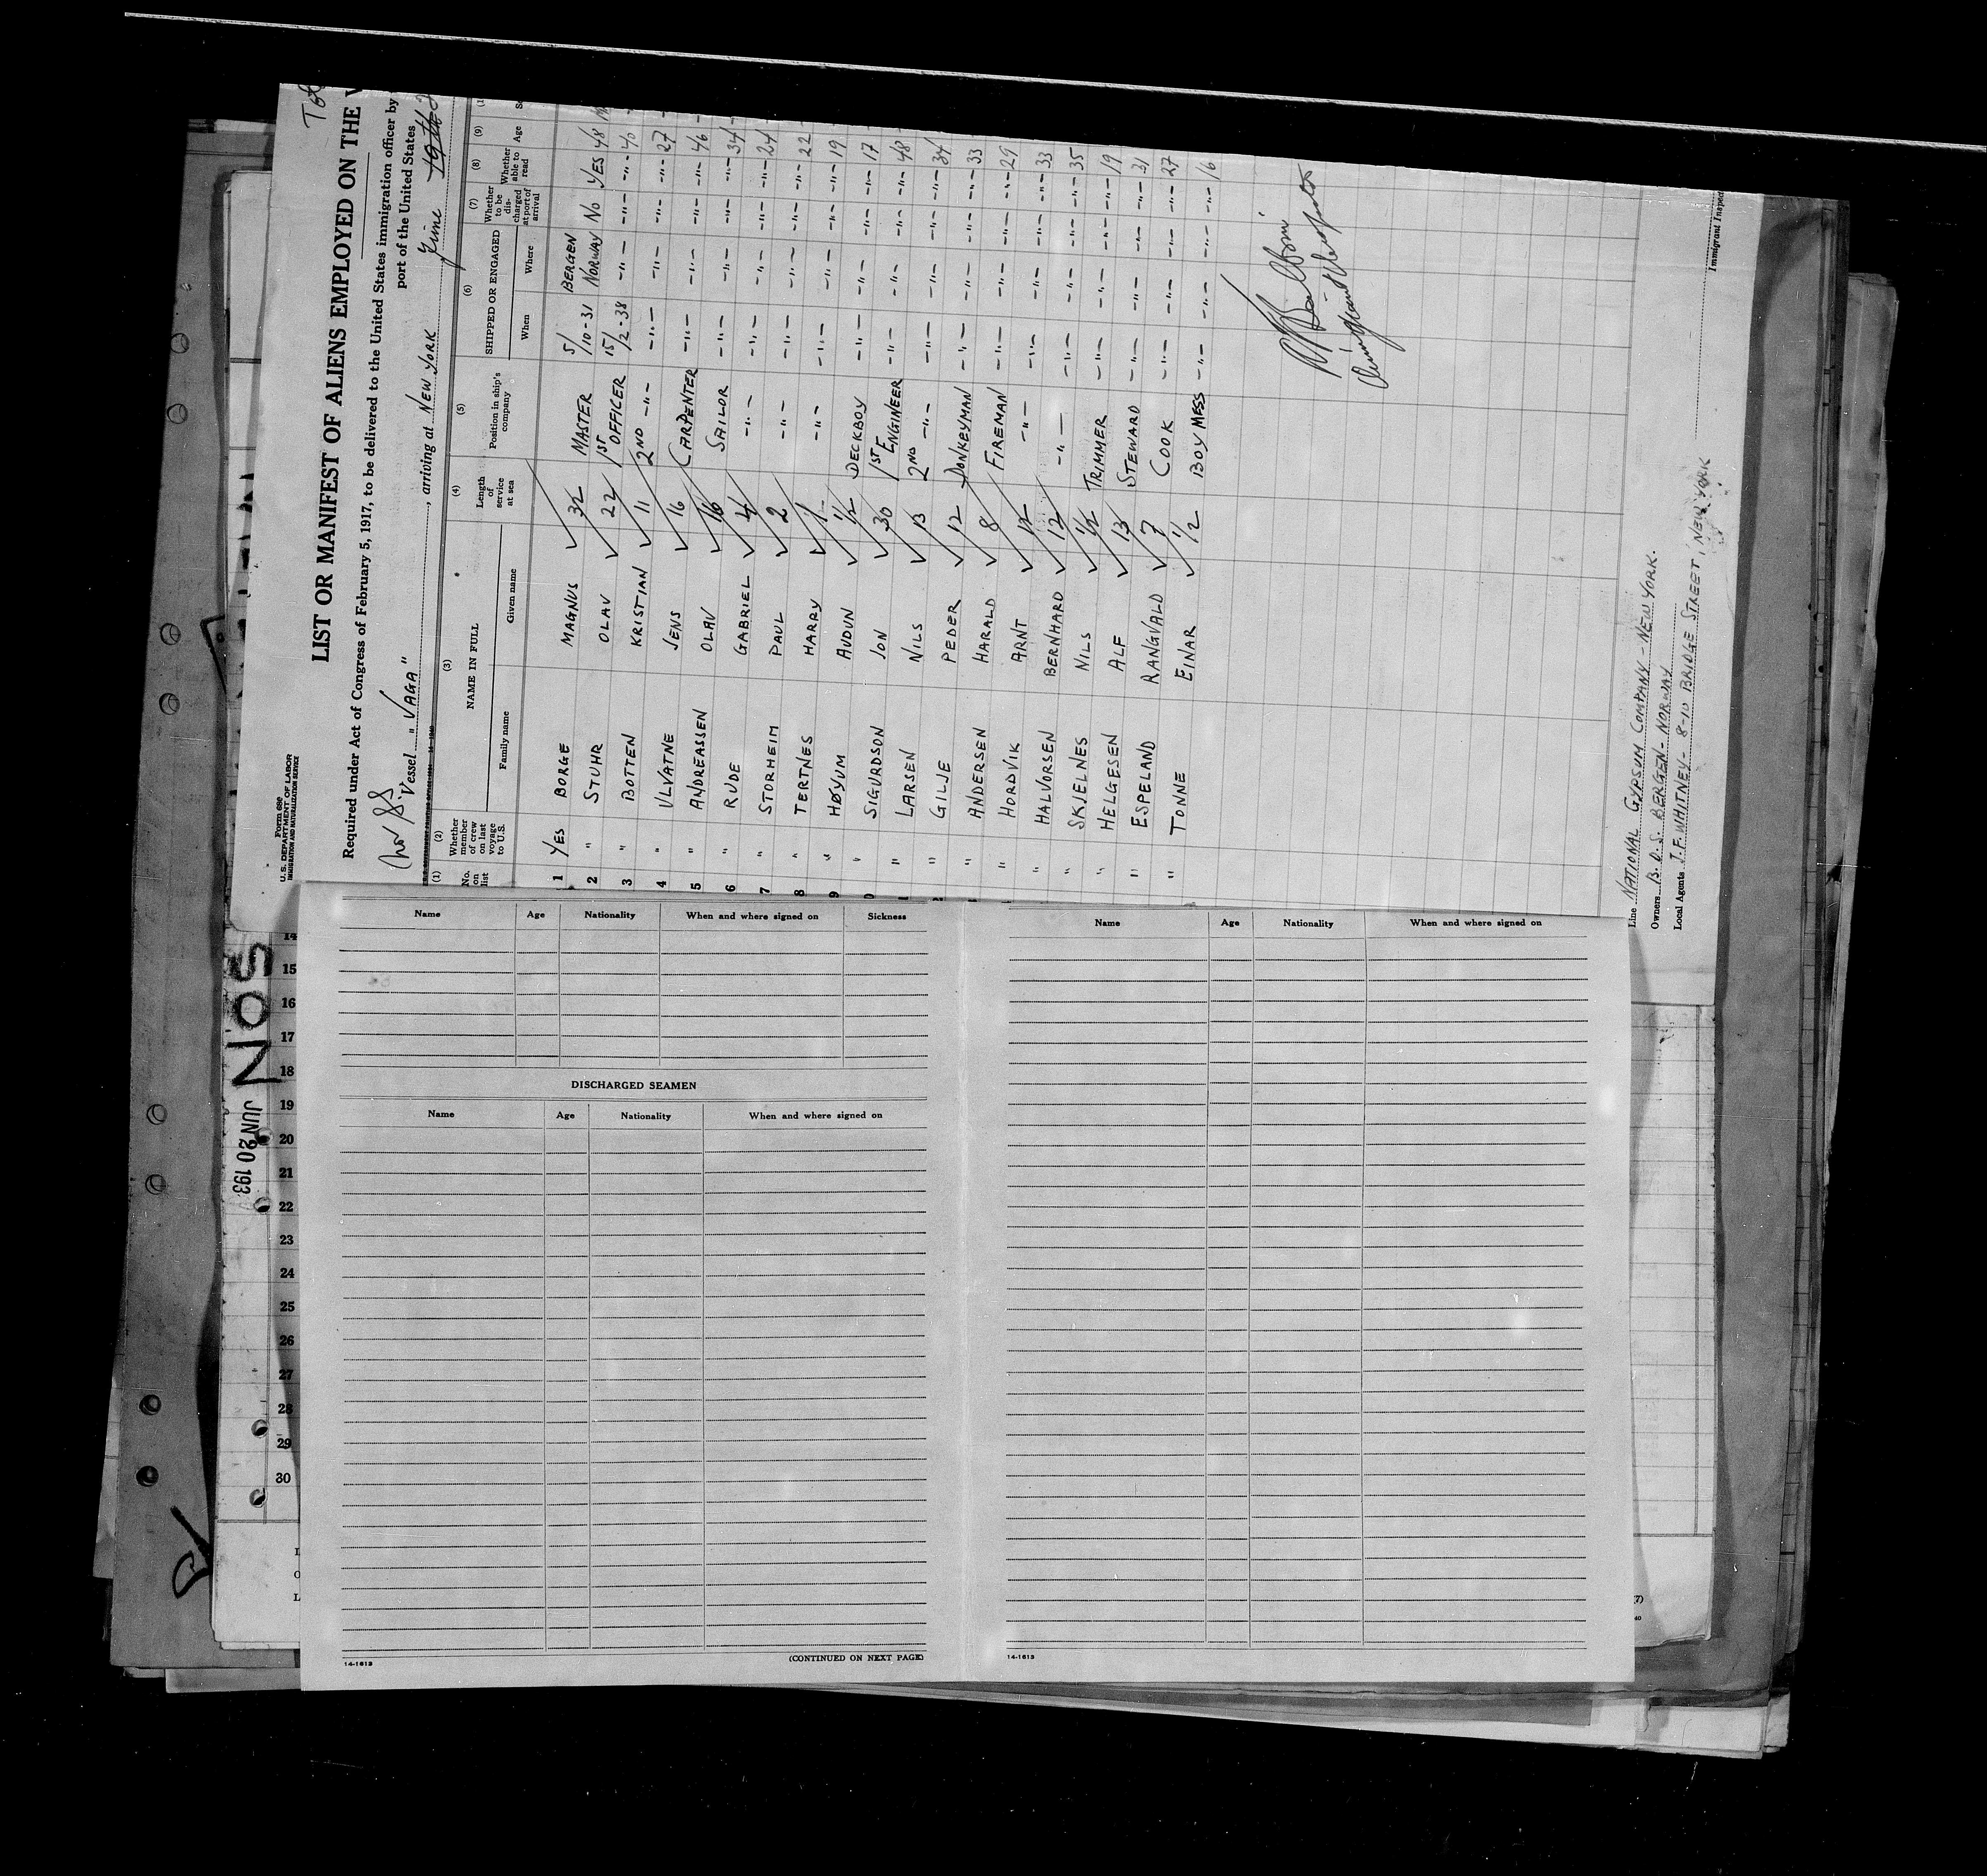 Form 680
U. S. DEPARTMENT OF LABOR
IMMIGRATION AND NATURALIZATION SERVICE
LIST OR MANIFEST OF ALIENS EMPLOYED ON THE
Required under Act of Congress of February 5, 1917, to be delivered to the United States immigration officer by
port of the United States
Nor SS Vessel "VAGA", arriving at NEW YORK June 19th
(1) No. on list (2) Whether member of crew on last voyage to U.S. (3) NAME IN FULL Family name Given name (4) Length of service at sea (5) Position in ship's company (6) SHIPPED OR ENGAGED When Where (7) Whether to be discharged at port of arrival (8) Whether able to read (9) Age
1 YES BORGE MAGNUS 32 MASTER 5/10-31 BERGEN NORWAY No YES 48
2 " STUHR OLAV 22 1ST OFFICER 15/2-38 -"- -"- -"- 40
3 " BOTTEN KRISTIAN 11 2ND -"- -"- -"- -"- -"- 27
4 " ULVATNE JENS 16 CARPENTER -"- -"- -"- -"- 46
5 " ANDREASSEN OLAV 16 SAILOR -"- -"- -"- -"- 34
6 " RUDE GABRIEL 4 -"- -"- -"- -"- -"- 24
7 " STORHEIM PAUL 2 -"- -"- -"- -"- -"- 22
8 " TERTNES HARRY 1 -"- -"- -"- -"- -"- 19
9 " HØYUM AUDUN 1/2 DECKBOY -"- -"- -"- -"- 17
0 " SIGURDSON JON 30 1ST ENGINEER -"- -"- -"- -"- 48
" LARSEN NILS 13 2ND -"- -"- -"- -"- -"- 34
" GILJE PEDER 12 DONKEYMAN -"- -"- -"- -"- 33
" ANDERSEN HARALD 8 FIREMAN -"- -"- -"- -"- 29
" HORDVIK ARNT 12 -"- -"- -"- -"- -"- 33
" HALVORSEN BERNHARD 12 -"- -"- -"- -"- -"- 35
" SKJELNES NILS 1/2 TRIMMER -"- -"- -"- -"- 19
" HELGESEN ALF 13 STEWARD -"- -"- -"- -"- 31
" ESPELAND RANGVALD 7 COOK -"- -"- -"- -"- 27
" TONNE EINAR 1/2 BOY MESS -"- -"- -"- -"- 16
Line NATIONAL GYPSUM COMPANY - NEW YORK.
Owners B. D. S. BERGEN - NORWAY
Local Agents J. F. WHITNEY - 8-10 BRIDGE STREET, NEW YORK
Immigrant Inspec
Name Age Nationality When and where signed on Sickness
DISCHARGED SEAMEN
Name Age Nationality When and where signed on
(CONTINUED ON NEXT PAGE)
14-1613
Name Age Nationality When and where signed on
14-1613
14
15
16
17
18
19
20
21
22
23
24
25
26
27
28
29
30
SON
JUN 20 193